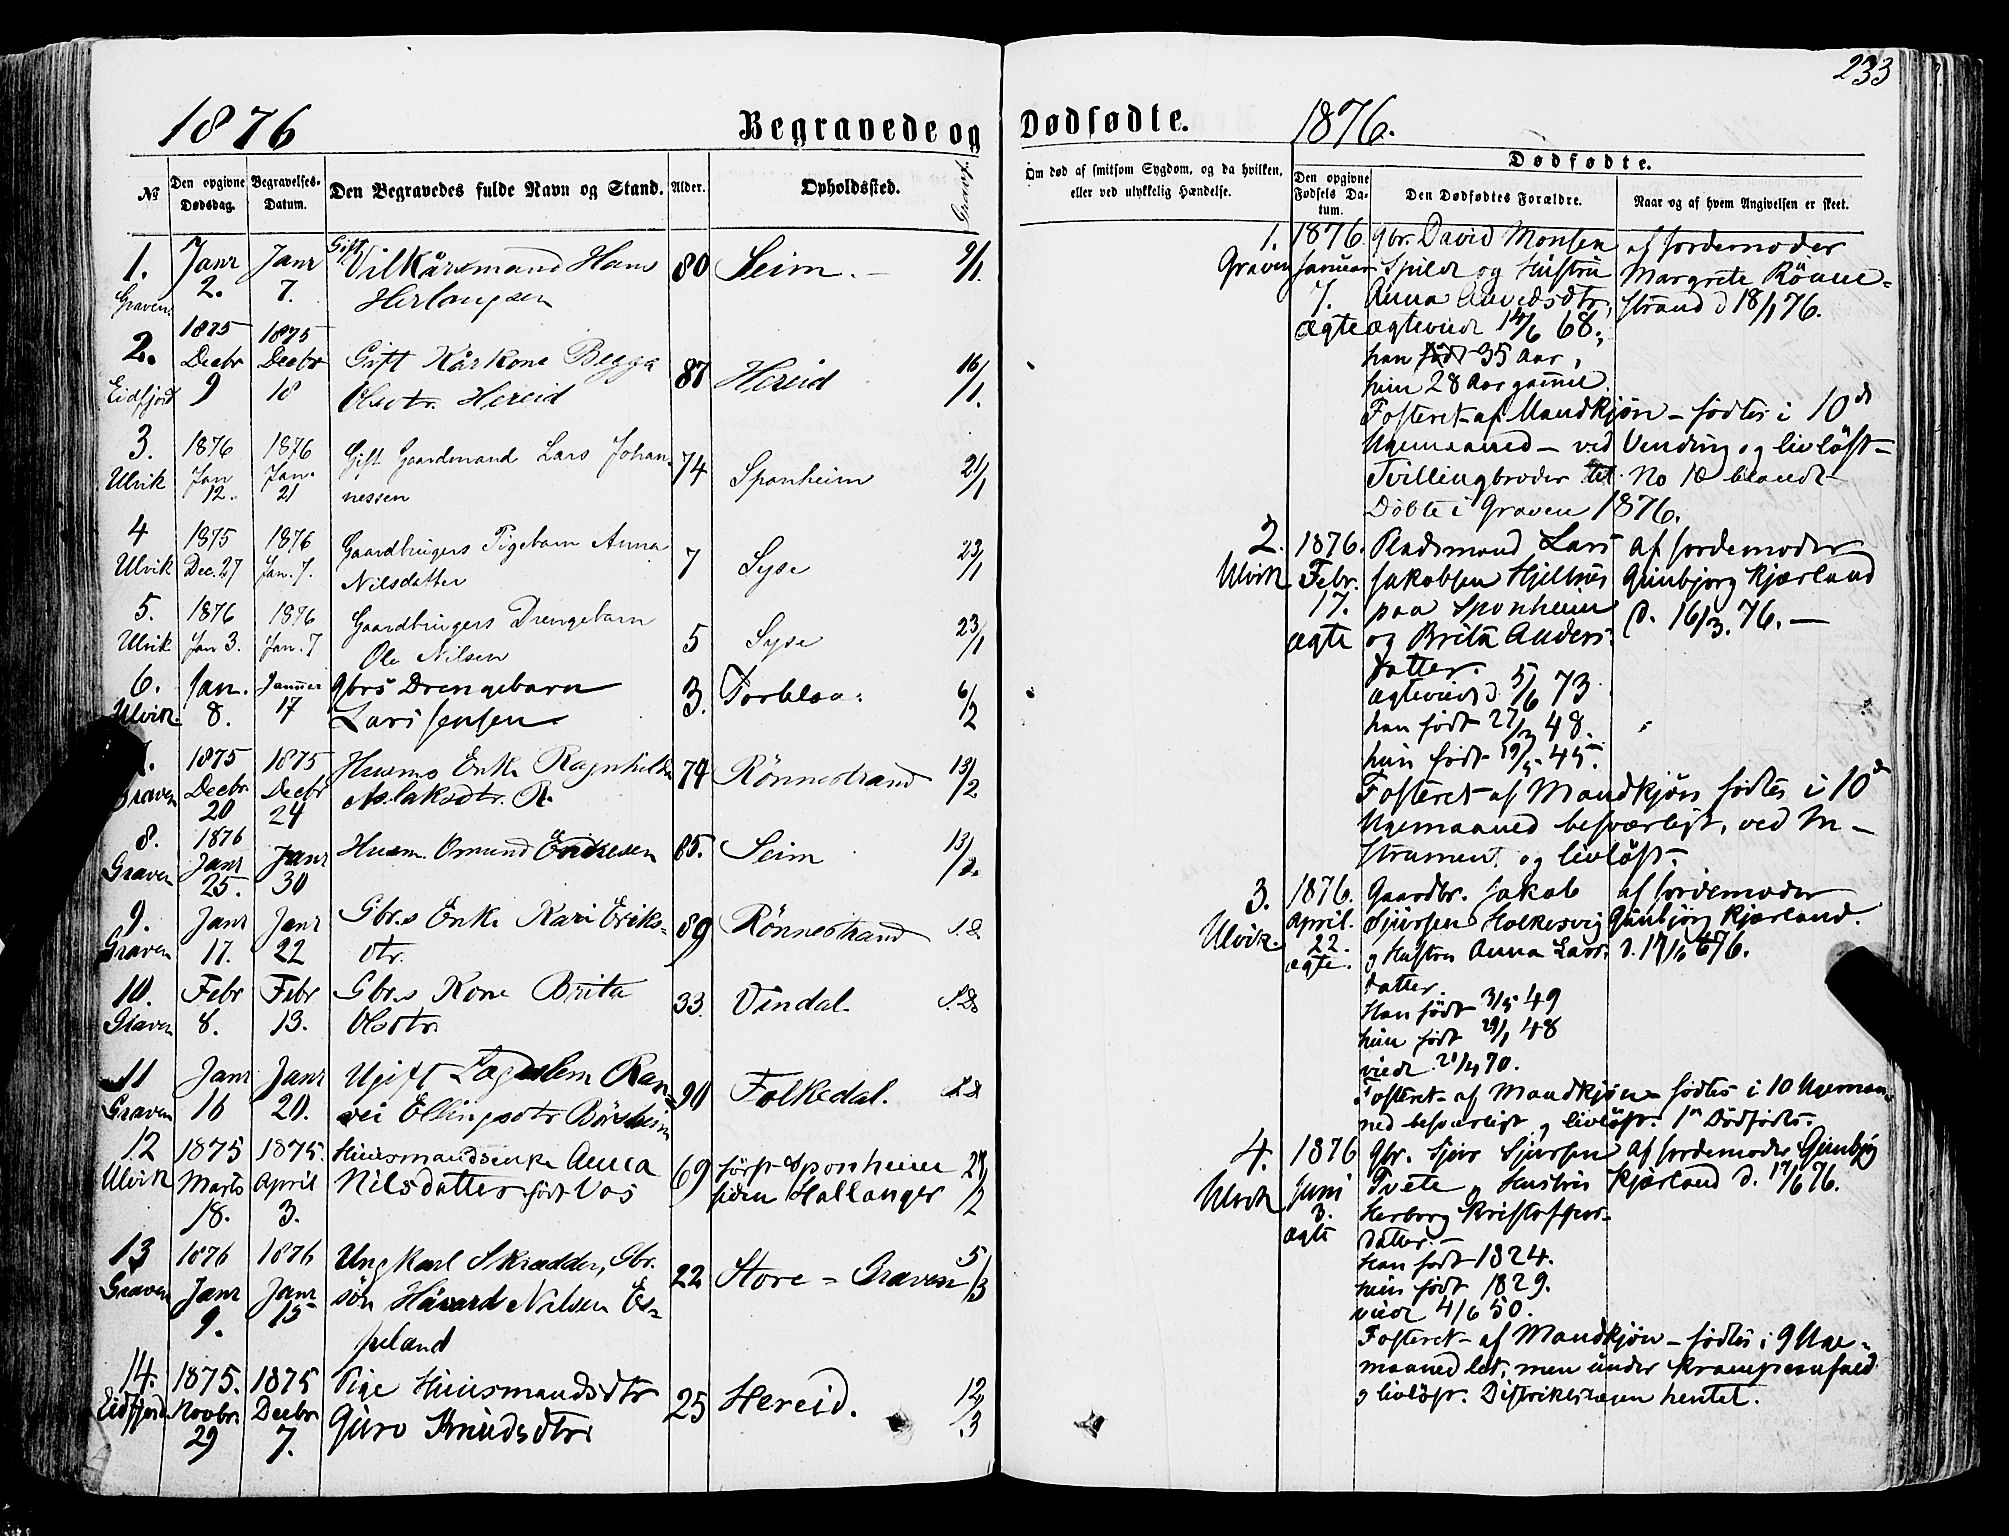 233
1876
Begravede og Dødfødte.
1876.
№
Den opgivne Dødsdag.
Begravelses-Datum.
Den Begravedes fulde Navn og Stand.
Alder.
Opholdssted.
Om død af smitsom Sygdom, og da hvilken,
eller ved ulykkelig Hændelse.
Dødfødte.
Den opgivne Fødsels Da-tum.
Den Dødfødtes Forældre.
Naar og af hvem Angivelsen er skeet.
1. Janr Janr Gift Vilkårsmand Hans 80 Seim. 9/1.
Graven 2. 7. Herlaugsen
2. 1875 1875
Decbr Decbr Gift Kårkone Begga 87 Hereid 16/1.
Eidfjord 9 18 Olsdtr. Hereid
3. 1876 1876 Gift Gaardmand Lars Johan- 74 Sponheim 21/1
Ulvik Jan 12. Jan. 21 nessen
4 1875 1876 Gaardbrugers Pigebarn Anna 7 Syse 23/1
Ulvik Dec. 27 Jan. 7. Nilsdatter
5. 1876 1876 Gaardbrugers Drengebarn 5 Syse 23/1
Ulvik Jan 3. Jan. 7 Ole Nilsen
6. Jan. Januer Gbrs Drengebarn 3. Torblaa. 6/2
Ulvik. 8. 17 Lars Jensen.
7. 1875 1875 Husms Enke Ragnhild 74 Rönnestrand 13/2
Graven Decbr. 20 Decbr 24 Aslaksdtr. R.
8. 1876
Graven Janr 25. Janr 30 Husm. Omund Endresen 85. Seim 13/2.
9. Janr Janr Gbr.s Enke Kari Eriks- 89 Rönnestrand
Graven 17. 22 dtr.
10. Febr Febr Gbr.s Kone Brita 33. Vindal
Graven 8. 13. Olsdtr.
11 Janr Janr Ugift Lægdslem Ran- 90 Folkedal.
Graven 16 20. vei Ellingsdtr Börsheim
12 1875 1875. Huusmandsenke Anna 69 först Sponheim 27/2
Ulvik Marts 18. April 3. Nilsdatter født Vos siden Hallanger
13 1876 1876 Ungkarl Skrædder, Gbr. 22 Store = Graven 5/3
Graven Janr 9. Janr 15 sön Håvard Nilsen Es-
peland
14. 1875. 1875 Pige Huusmandsdtr 25 Hereid. 12/3
Eidfjord Novbr. 29 Decbr 7. Guro Knudsdtr
1. 1876. Gbr. David Monsen af Jordemoder
Graven Januar Spilde og Hustru Margrete Rönne-
7. Anna Arvidsdtr, strand d 18/1 76.
ægte ægteviede 14/6 68;
han født 35 Aar,
hun 28 Aar gammel.
Fosteret af Mandkjøn – fødtes i 10de
Ugemaaned – ved Vending og livløst –
Tvillingbroder til No 10 blandt
Døbte i Graven 1876.
2. 1876. Radsmand Lars af Jordemoder
Ulvik Febr. Jakobsen Hjeltnes Gunbjorg Kjærland
17. paa Sponheim d. 16/3. 76. –
ægte og Brita Anders-
datter.
ægteviede d 5/6 73
han født 27/2 48.
hun født 19/5 45.
Fosteret af Mandkjøn fødtes i 10de
Ugemaaned besværligt, ved In-
strument og livløst.
3. 1876. Gaardbr. Jakob af Jordemoder
Ulvik. April. Sjursen Holkesvig Gunbjørg Kjærland.
22. og Hustru Anna Lars- d. 17/6 76.
ægte. datter.
Han født 3/5 49
hun født 29/1 48
viede 21/4 70.
Fosteret af Mandkjøn – fødtes i 10 Ugemaa-
ned besværligt og livløst. 1ste Dødfødte.
4. 1876 Gbr. Sjur Sjursen af Jordemoder Gunbjørg
Ulvik Juni Tvete og Hustru Kjærland d. 17/6 76.
3. Herborg Kristoffers-
ægte datter. –
Han født 1824.
hun født 1829.
viede 4/6 50.
Fosteret af Mandkjøn – fødtes i 9 Uge-
maaned let, men under Krampeanfald
og livløst. Distriktslægen hentet.